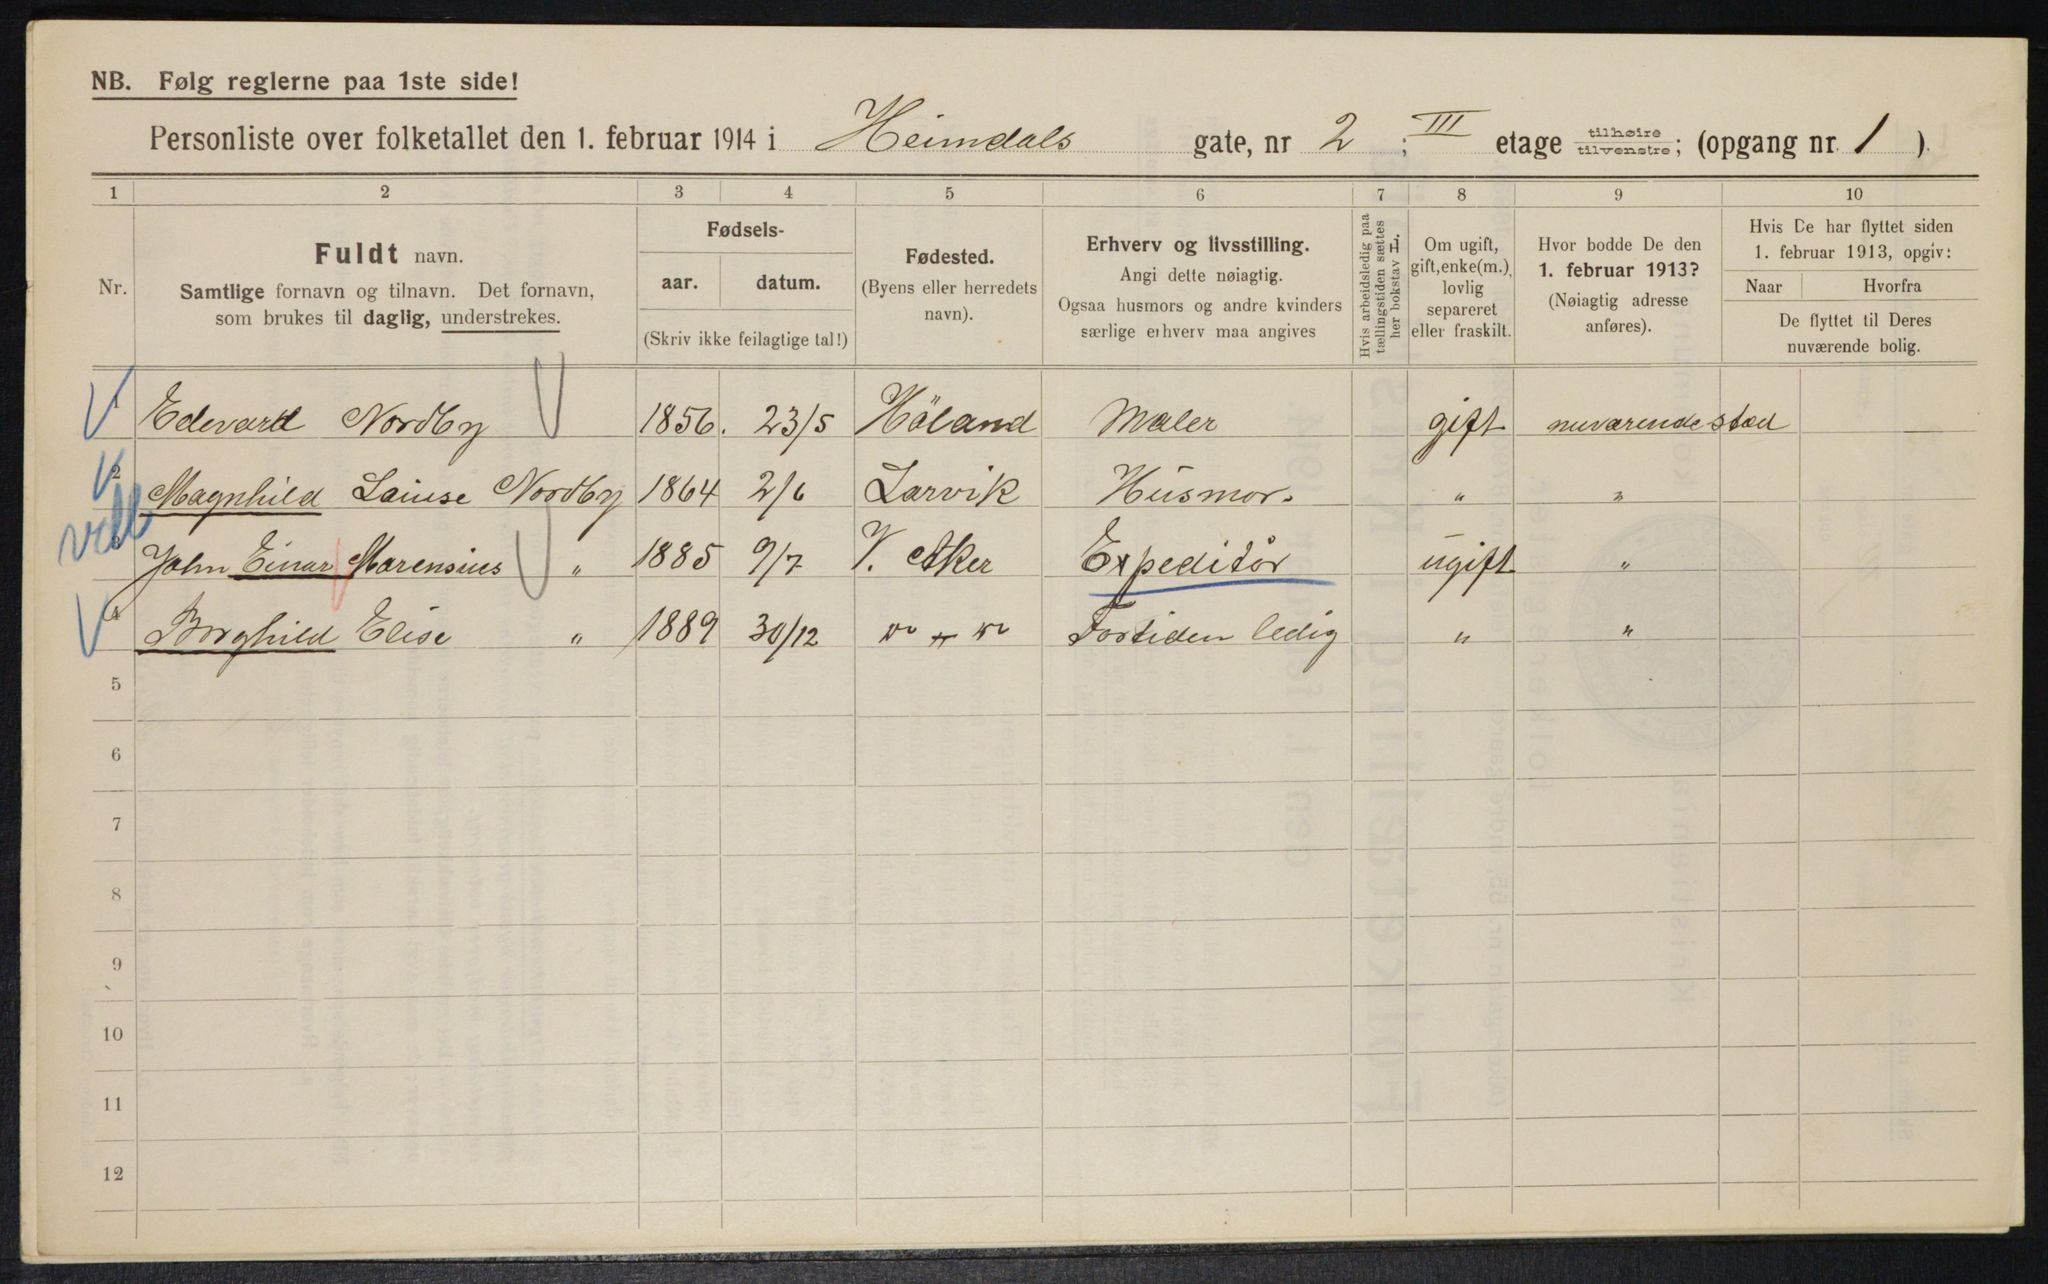 NB. Følg reglerne paa 1ste side!
Personliste over folketallet den 1. februar 1914 i Heimdals gate, nr 2 ; III etage tilhøire tilvenstre; (opgang nr. 1 ).
1 2 3 4 5 6 7 8 9 10
Nr.
Fuldt navn.
Samtlige fornavn og tilnavn. Det fornavn,
som brukes til daglig, understrekes.
Fødsels-
aar. datum.
(Skriv ikke feilagtige tal!)
Fødested.
(Byens eller herredets
navn).
Erhverv og livsstilling.
Angi dette nøiagtig.
Ogsaa husmors og andre kvinders
særlige erhverv maa angives
Hvis arbeidsledig paa
tællingstiden sættes
her bokstav L.
Om ugift,
gift, enke(m.),
lovlig
separeret
eller fraskilt.
Hvor bodde De den
1. februar 1913?
(Nøiagtig adresse
anføres).
Hvis De har flyttet siden
1. februar 1913, opgiv:
Naar Hvorfra
De flyttet til Deres
nuværende bolig.
1 Edevard Nordby 1856. 23/5 Höland Maler gift nuværende sted
2 Magnhild Laiuse Nordby 1864 2/6 Larvik Husmor. " "
3 John Einar Marensius " 1885 9/7 V. Aker Expeditör ugift "
4 Borghild Elise " 1889 30/12 " " Fortiden ledig " "
5
6
7
8
9
10
11
12